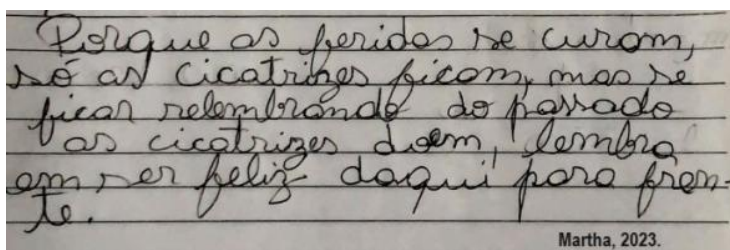 Porque as feridas se curam,
só as cicatrizes ficam, mas se
ficar relembrando do passado
as cicatrizes doem, lembra
em ser feliz daqui para fren-
te.
Martha, 2023.